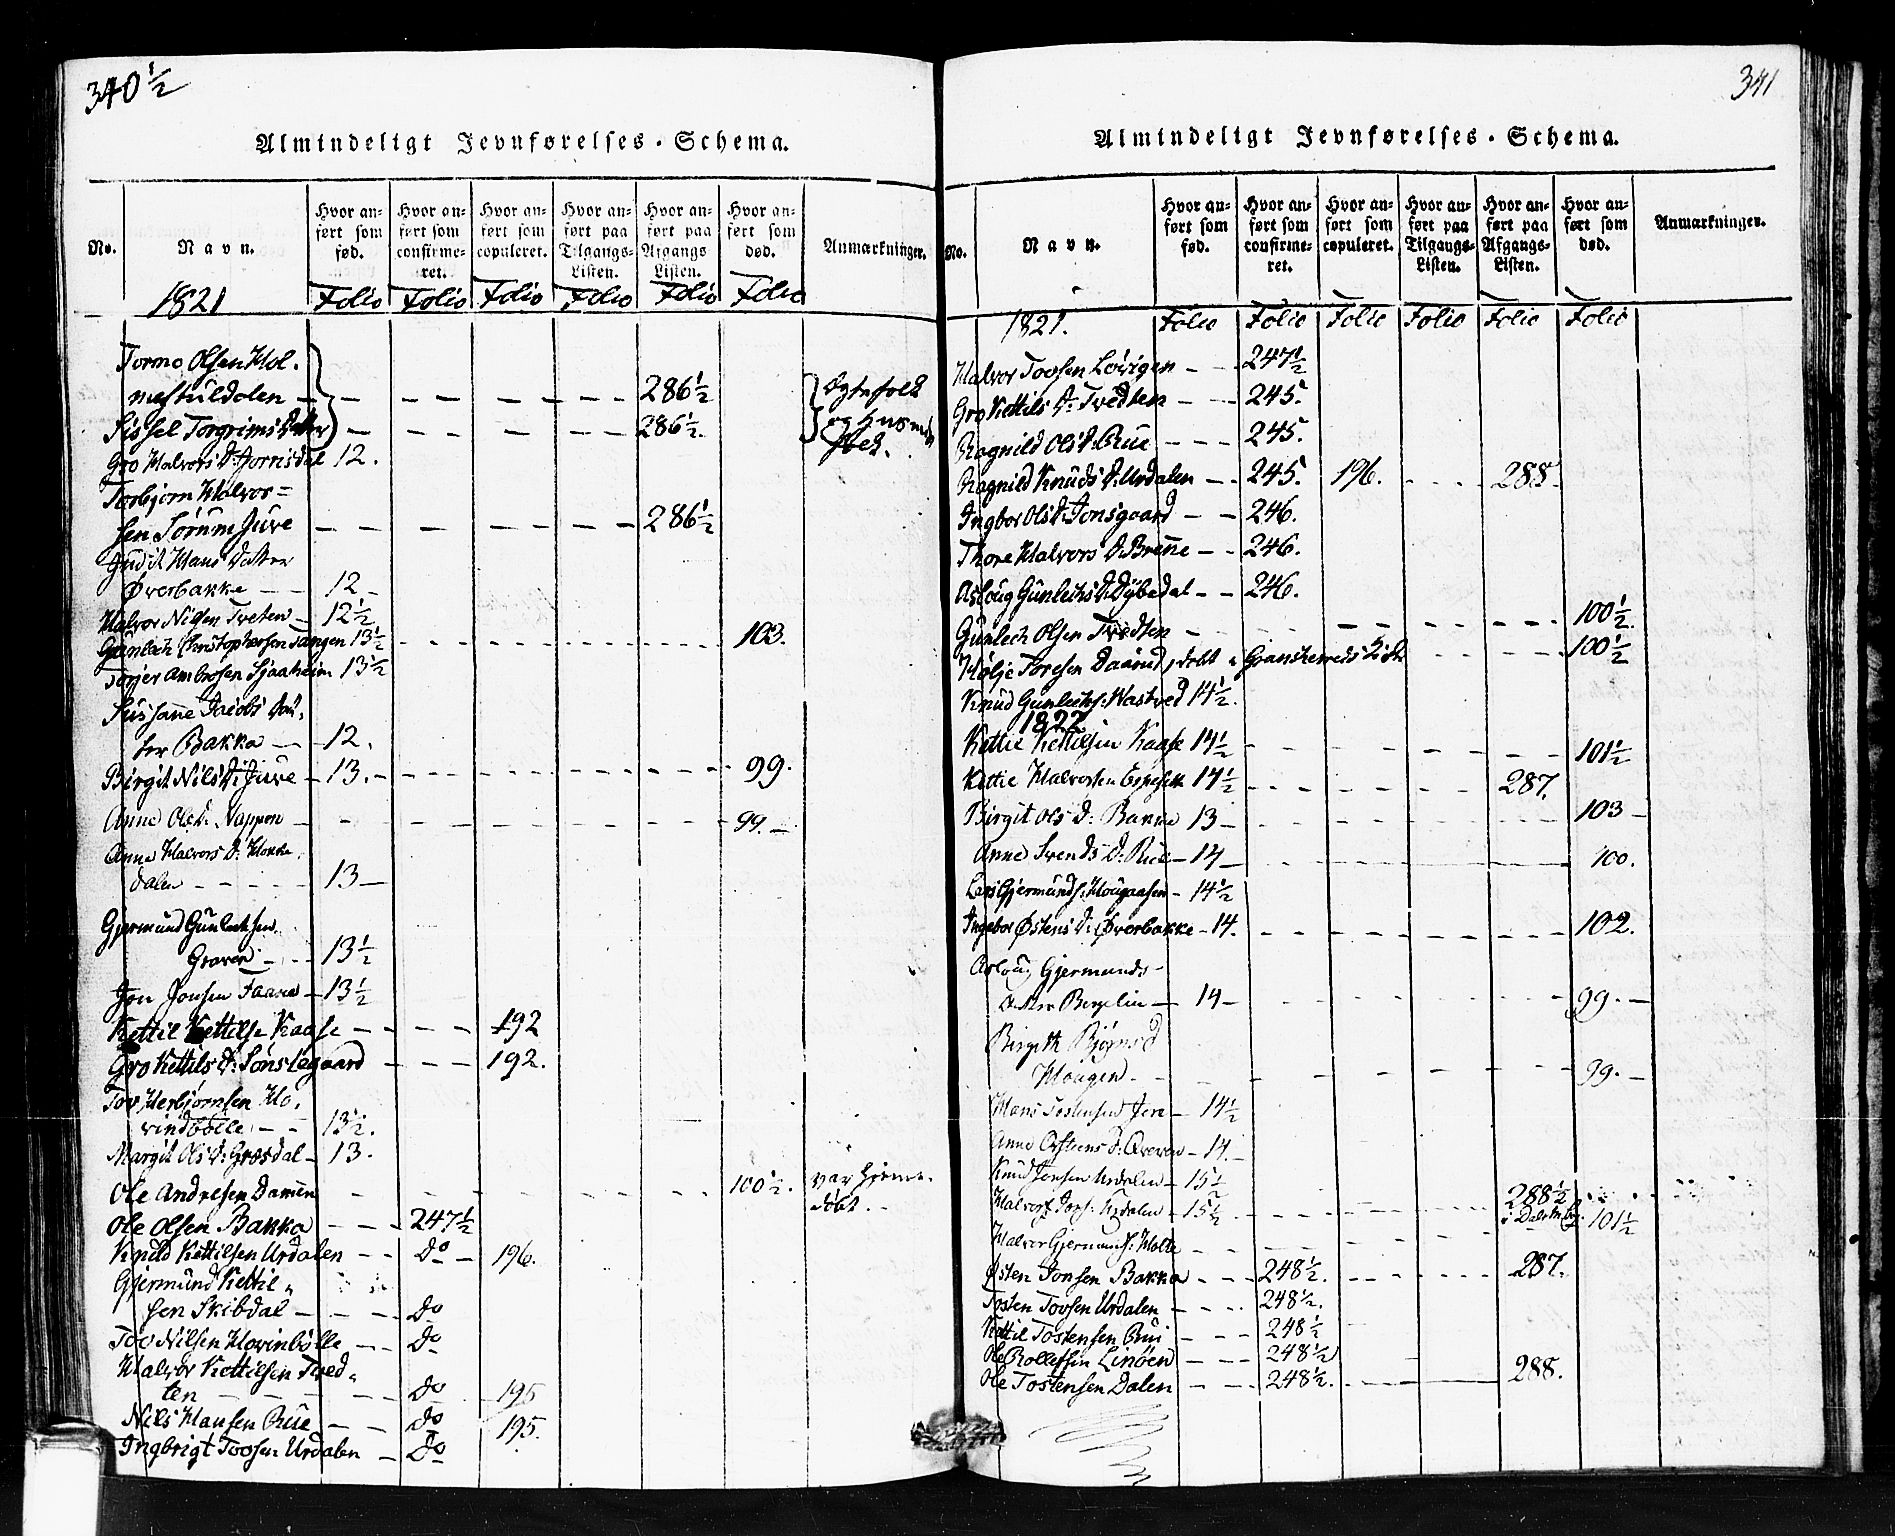 340½
Almindeligt Jevnførelses-Schema.
No. Navn. Hvor anført som fød. Hvor anført som confirmeret. Hvor anført som copuleret. Hvor anført paa Tilgangs-Listen. Hvor anført paa Afgangs Listen. Hvor anført som død. Anmærkninger.
1821 Folio Folio Folio Folio Folio Folio
Tormo Olsen Hol-
mestuldalen — — — — 286½ Ægtefolk
Sissel Torgrims Datter — — — — 286½. og huusmands
Gro Halvors D: Jorrisdal 12. folk.
Torbjørn Halvor=
sen Sørum Juve — — — — 286½
Gudit Hans Datter
Øverbakke — — 12 -
Halvor Nilsen Tveten — 12½
Gunlech Christophersen Tangen 13½ - - - - 103.
Torjer Ambrosen Sjaaheim 13½
Sussane Jacobs Dat-
ter Bakka — 12.
Birgit Nils D: Juve — 13. - - - - 99.
Anne Ols D: Nappen - - - - 99. —
Anne Halvors D: Hokke
dalen - - - - 13 —
Gjermund Gunlechsen
Graver - - - 13½
Jon Jonsen Faane — 13½
Kettil Kettilse Kaase — — — 192
Gro Kettils D: Sønstegaard — — — 192.
Tov Herbjørnsen Ho-
vindbølle — - 13½.
Margit Ols D: Grøsdal — 13.
Ole Andresen Damen - - - - 100½. var hjemme-
døbt. -
Ole Olsen Bakka — — — 247½
Knud Kettilsen Urdalen — — Do — 196.
Gjermund Kettil-
sen Skibdal — — — Do
Tov Nilsen Hovinbølle — — Do
Halvor Kettilsen Tved-
ten — — — — Do 195
Nils Hansen Rue — — Do 195.
Ingbrigt Tovsen Urdalen — Do
341
Almindeligt Jevnførelses-Schema.
No. Navn. Hvor anført som fød. Hvor anført som confirmeret. Hvor anført som copuleret. Hvor anført paa Tilgangs-Listen. Hvor anført paa Afgangs-Listen. Hvor anført som død. Anmærkninger.
1821. Folio Folio Folio Folio Folio Folio
Halvor Tovsen Løvigen — — 247½
Gro Kettils D: Tvedten — — 245.
Ragnild Ols D: Rue — — — 245.
Ragnild Knuds D: Urdalen — — 245. 196. - - - 288.
Ingbor Ols D: Jonsgaard — — 246.
Thore Halvors D: Brenne — — 246.
Asloug Gunlechs D: Dybedal — — 246.
Gunlech Olsen Tvedten — - - - 100½.
Hølje Toresen Daarud, døbt i Gransherreds Kirke - - - 100½
Knud Gunlechs: Hastved 14½.
1822
Kettil Kettilsen Kaase 14½ - - - - 101½
Kettil Halvorsen 14½ - - - - 287.
Birgit Ols D: Bakka 13 — - - - 103 —
Anne Svends D: Rue — 14 — - - - 100.
Lars Gjermunds: Hougaasen — 14½
Ingebor Østens D: Øverbakke — 14. - - - - 102.
Asloug Gjermunds-
datter Bergelin — 14 — - - - 99. —
Birgith Bjørns D
Hougen - - - - 99. —
Hans Tostensen Jere — 14½
Anne Østens D: — 14. —
Knud Jonsen Urdalen — 15½
Halvor Jons: — 15½ - - - - 288½
101½
Halvor Gjermunds: Holte
Østen Jonsen Bakka — — — 248½. - - - 287.
Tosten Tovsen Urdalen — - - 248½.
Kettil Tostensen Rui — — — 248½
Ole Rollefsen Linøen — — — 248½
Ole Tostensen Dalen — — — 248½. - - 288.